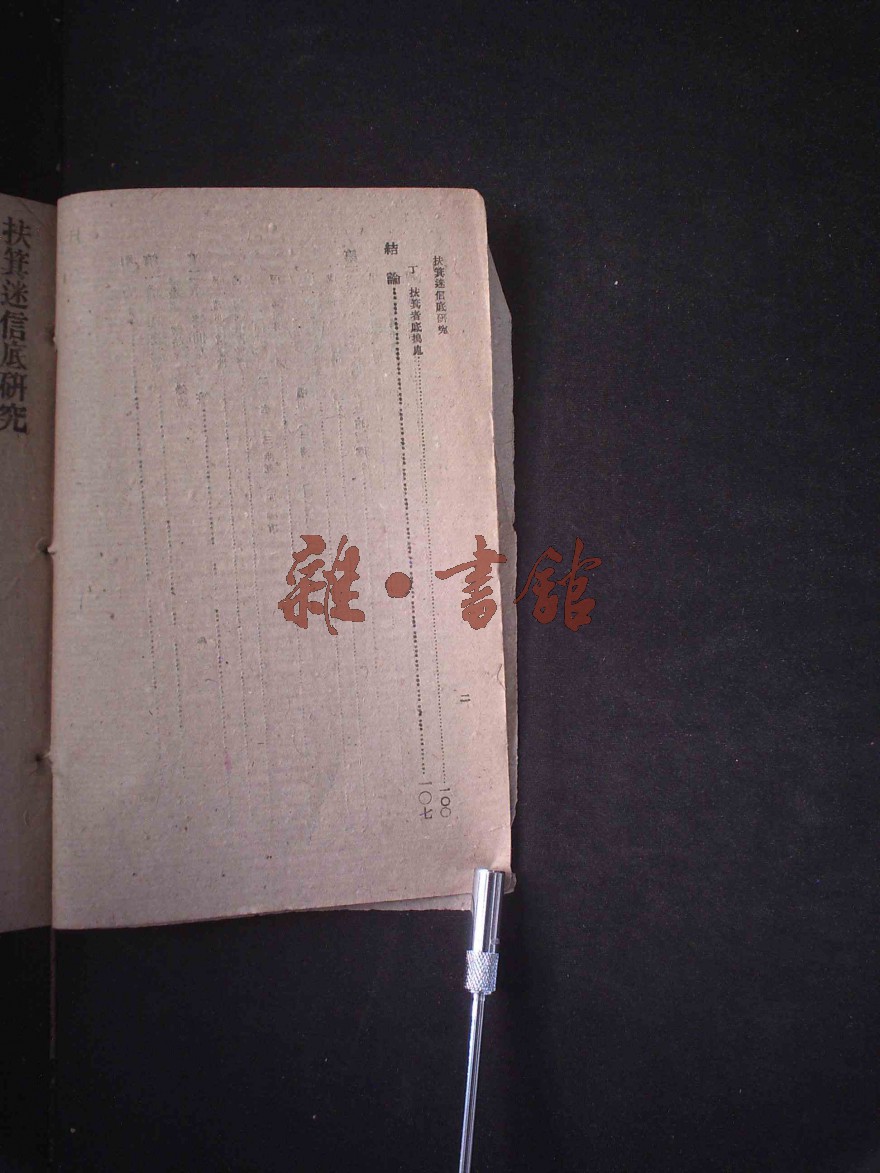 扶箕迷信底研究
二
丁 扶箕者底情處……一〇〇
結論……一〇七
扶箕迷信底研究
雜·書館